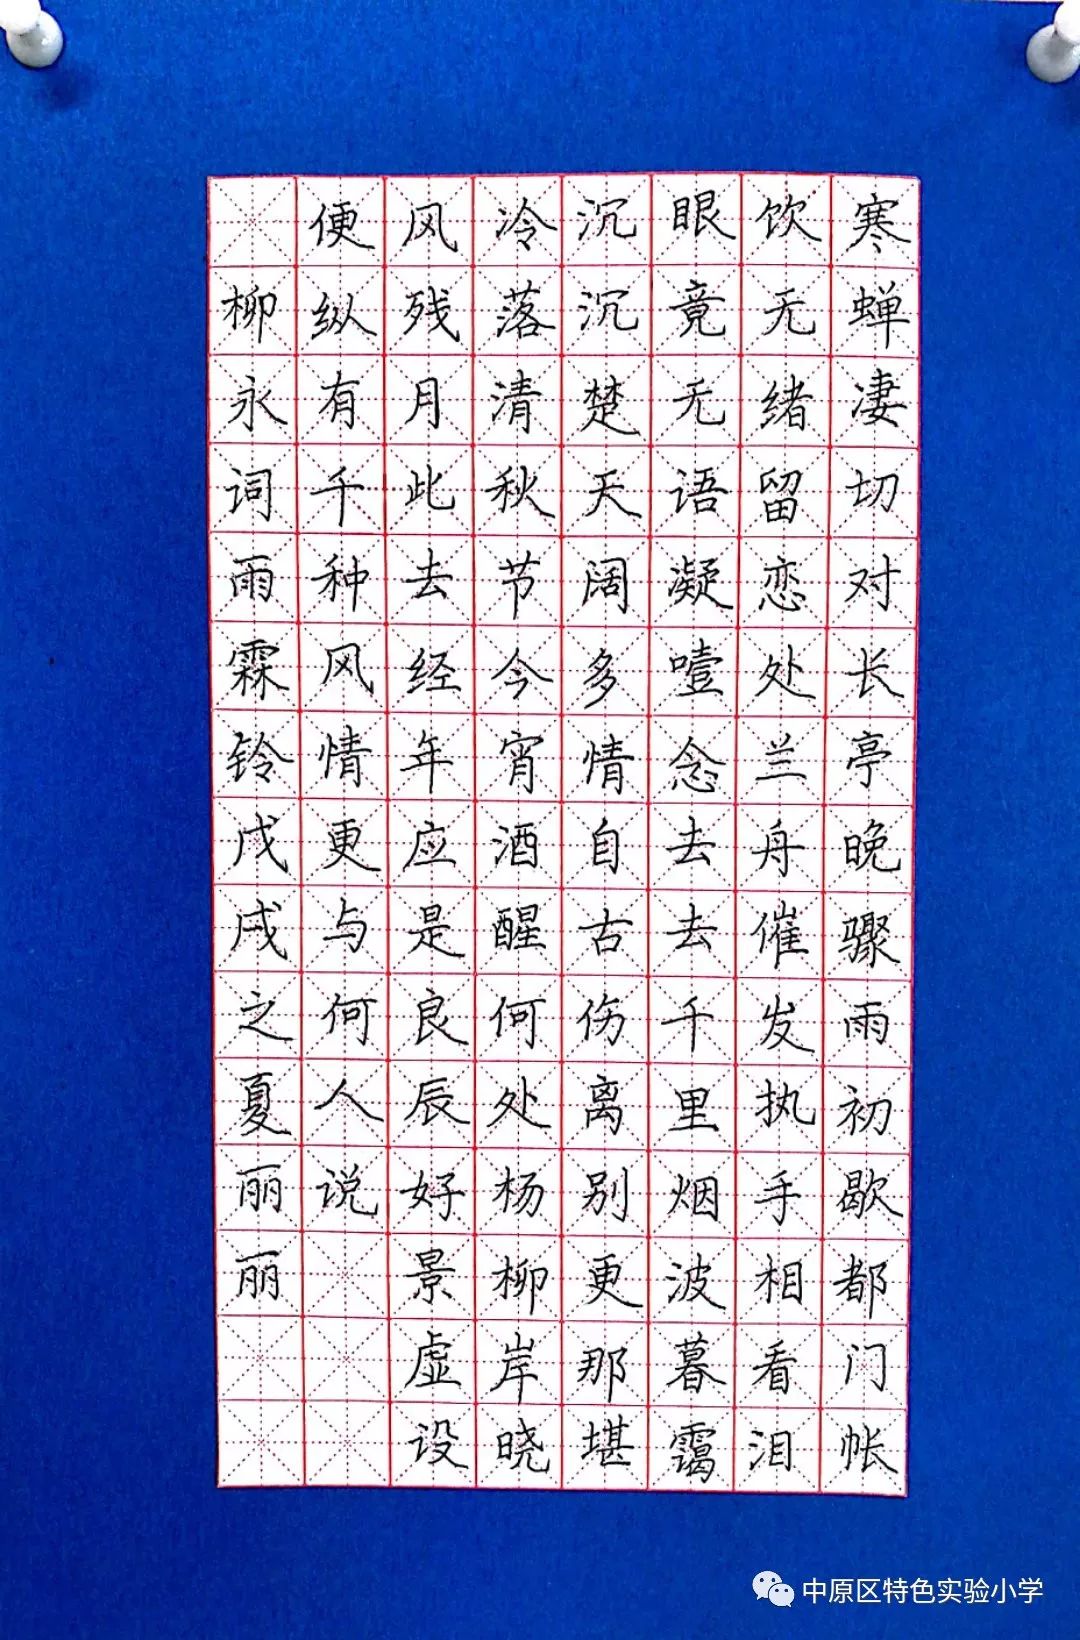 寒蝉凄切对长亭晚骤雨初歇都门帐
饮无绪留恋处兰舟催发执手相看泪
眼竟无语凝噎念去去千里烟波暮霭
沉沉楚天阔多情自古伤离别更那堪
冷落清秋节今宵酒醒何处杨柳岸晓
风残月此去经年应是良辰好景虚设
便纵有千种风情更与何人说
柳永词雨霖铃戊戌之夏丽丽
中原区特色实验小学